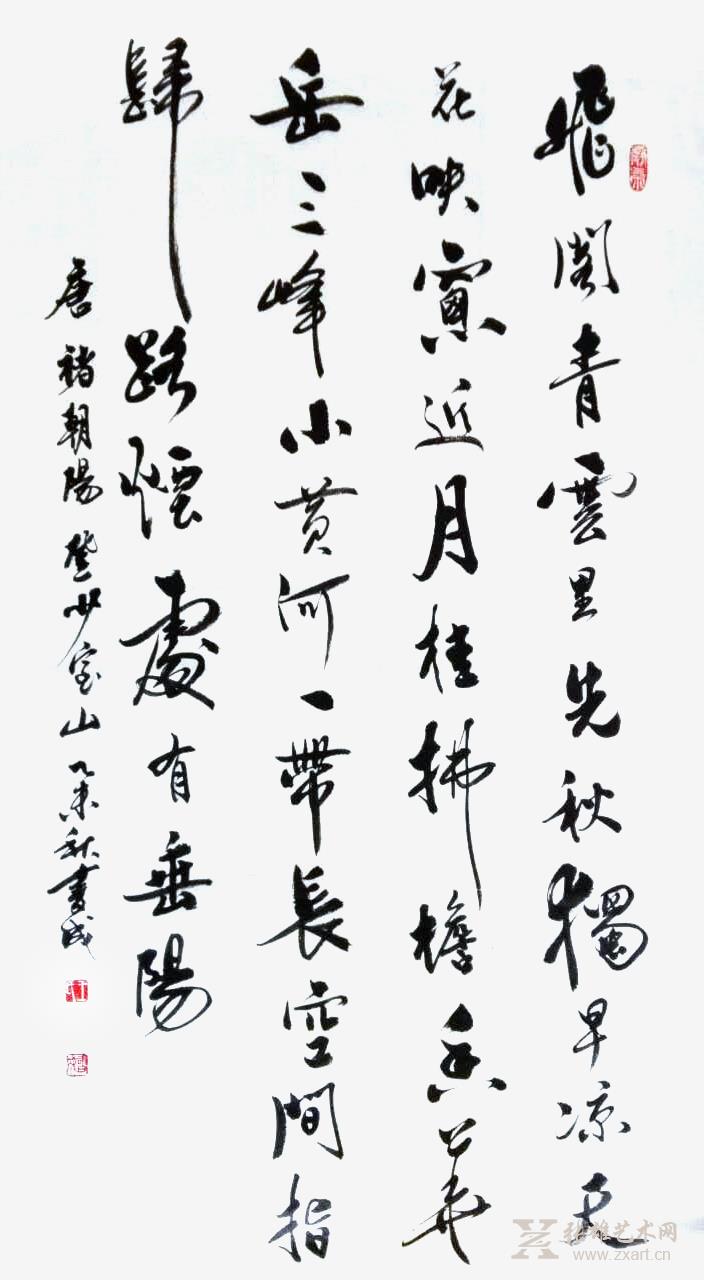 飛閣青雲里先秋獨早凉天
花映窗近月桂拂檐香華
岳三峰小黄河一帶長空間指
歸路煙處有垂陽
唐褚朝陽登少室山乙未秋書成
张雄艺术网
www.zxart.cn